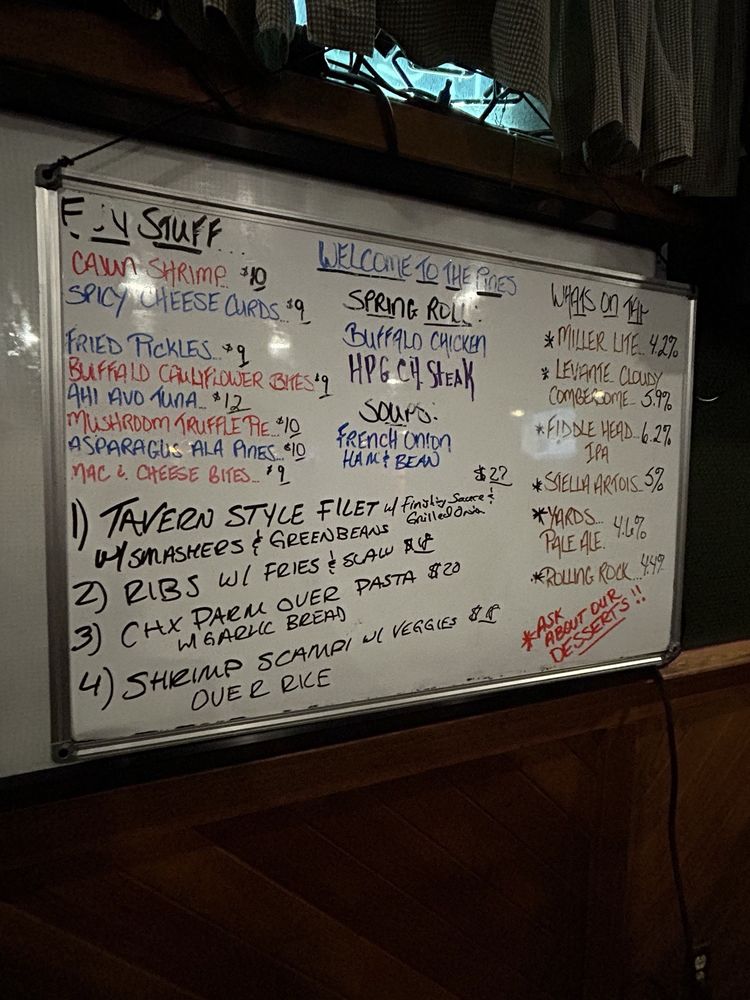 STUFF
CAJUN SHRIMP $10
SPICY CHEESE CURDS...$9
FRIED PICKLES...$9
BUFFALO CAULIFLOWER BITES $9
AHI AVO TUNA...$12
MUSHROOM TRUFFLE PIE...$10
ASPARAGUS ALA PINES...$10
MAC & CHEESE BITES...$9
WELCOME TO THE PINES
SPRING ROLL:
BUFFALO CHICKEN
STEAK
SOUPS:
FRENCH ONION
HAM & BEAN
WHATS ON TAP
*MILLER LITE...4.2%
*LEVANTE CLOUDY
CUMBERSOME...5.9%
*FIDDLE HEAD...6.2%
IPA
*STELLA ARTOIS...5%
*YARDS...
PALE ALE. 4.6%
*ROLLING ROCK...4.4%
*ASK
ABOUT OUR
DESSERTS!!
$27
1) TAVERN STYLE FILET w/ Finishing Sauce &
Grilled Onion
W/ SMASHERS & GREENBEANS
2) RIBS W/ FRIES & SLAW
3) CHX PARM OVER PASTA $20
W/ GARLIC BREAD
4) SHRIMP SCAMPI W/ VEGGIES
OVER RICE